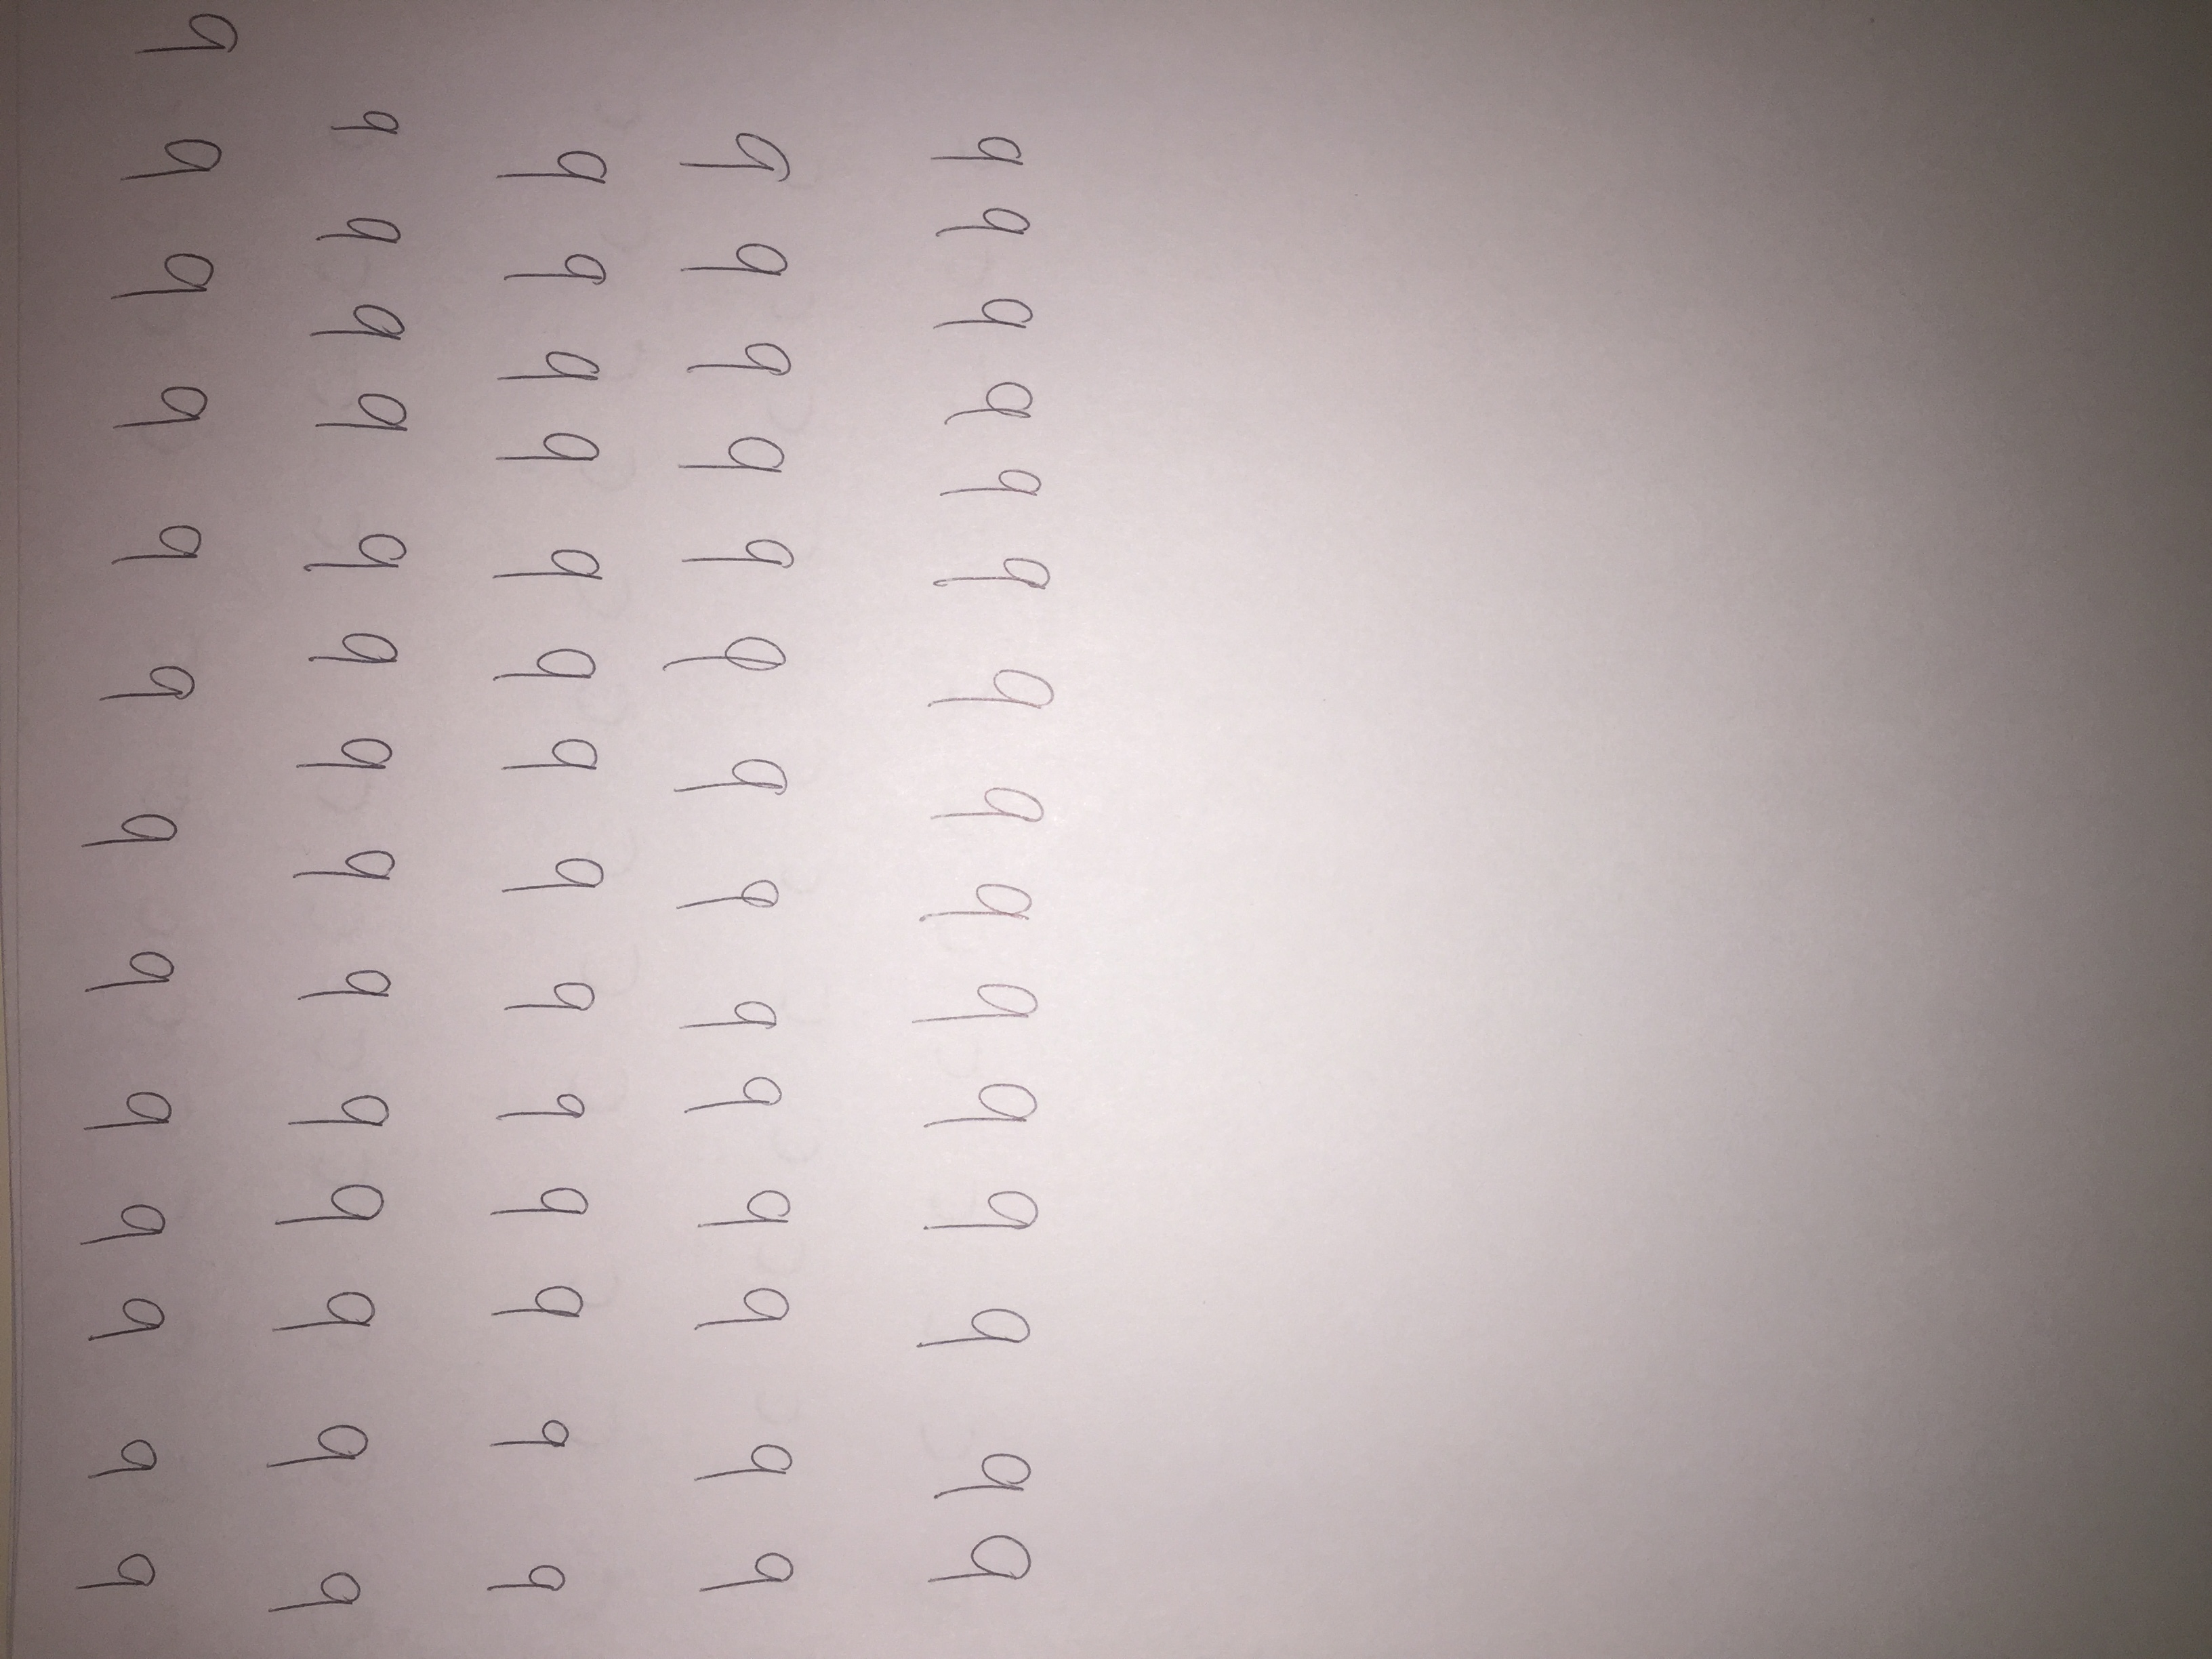 b b b b b b b b b b b b b
b b b b b b b b b b b b b b
b b b b b b b b b b b b b b
b b b b b b b b b b b b b b
b b b b b b b b b b b b b b b